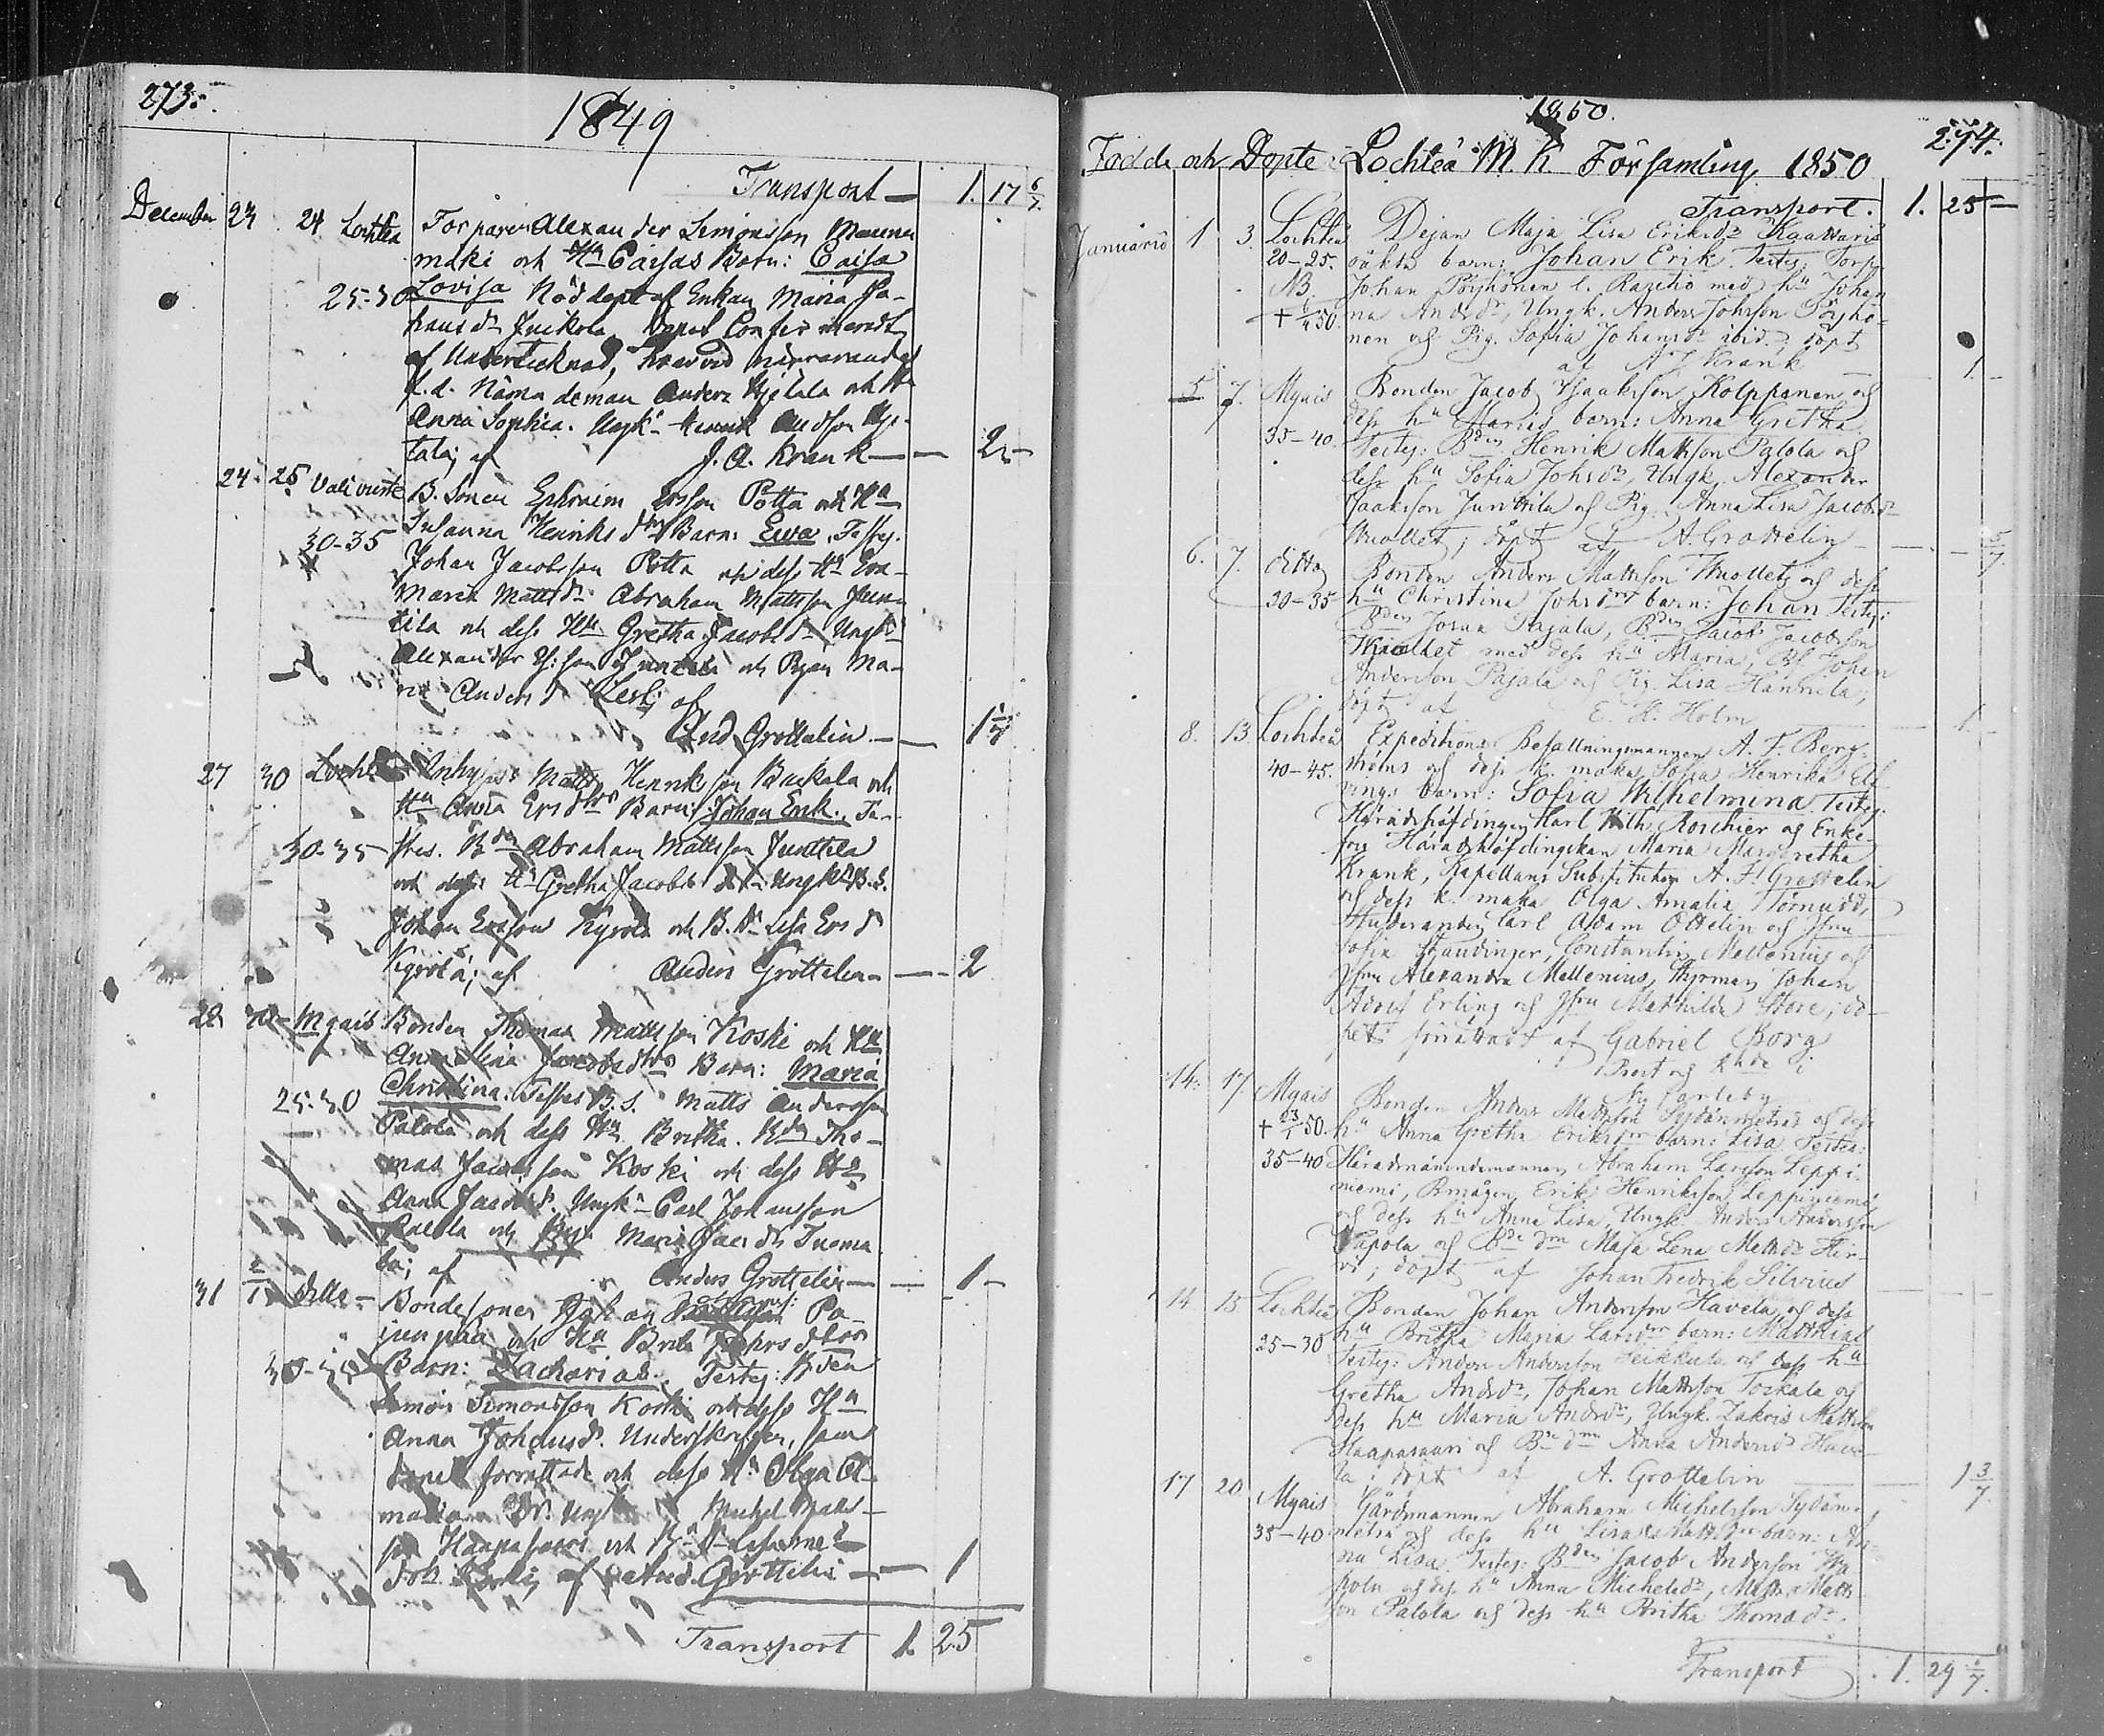 273.
1849
Transport — 1. 17 6/7.
December 23 24 Lochtea Torparen Alexander Simonsson
mäki och Hu Caisas Barn: Caisa
25-30 Lovisa Nöd döpt af Enkan Maria Jo-
hans dr Juckola Dopet Confirmeradt
af Undertecknad,
f.d. Nämndeman Anders och Hu
Anna Sophia. Ungk. Henrik Andsson
tala; af J. A. Krank — 2 —
24 25 B. Sonen Ephraim Ersson Potta och Hu
Susanna Henriks dtrs Barn: Ewa. Testes.
30-35 Johan Jacobsson Potta och dess Hu Eva
Maria Matts dr Abraham Mattsson Jun-
tila och dess Hu Gretha Jacobs dr Ungk.
Alexander Juntila och Pigan Ma-
ria Anders dr af
And. Grottelin — 1 1/7
27 30 Locht Inhyses Matts Henriksson Backala och
Hu Anna Ers dtrs Barn: Johan Erik. Te-
30-35 stes. Bden Abraham Mattsson Junttila
och dess Hu Gretha Jacobs dr Ungk. B.S.
Johan Ersson Kyrölä och B. Dr Lisa Ers dr
Kyrölä; af Anders Grottelin — 2
28 30 Mgais Bonden Thomas Mattsson Koski och Hu
Anna Lina Jacobsdtrs Barn: Maria
Christina. Testes B.S. Matts Andersson
25-30 Palola och dess Hu Britha. Bden Tho-
mas Jacobsson Koski och dess Hu
Anna Jacobs dr. Ungk. Carl Johansson
Palola och Pig. Maria Jac dr Tuoma
la; af Anders Grottelin — 1 —
31 2/1 ditto — Bondesonen Johan Pa-
junpää och Hu Brita Johrs dtrs
30-35 Barn: Zacharias. Testes: Bden
Simon Simonsson Koski och dess Hu
Anna Johansdr. Underskrifven, som
dopet förrättade och dess Hu Olga A-
malia Michel Matts-
son Haapasaari och
af And. Grottelin — 1
Transport 1. 25
1850.
274.
Födde och Döpte i Lochteå M. K. Församling 1850
Transport. 1. 25 —
Januarii 1 3. Lochteå Dejan Maja Lisa Eriksdr Kaattaris
20-25. oäkta barn: Johan Erik. Testes: Torp.
NB Johan Pöyhönen l. Razehio med hu Johan
+ 50. na Andsdr, Ungk. Anders Johrson Pöyhö-
nen och Pig. Sofia Johansdr ibid.; döpt
af A J Krank 1. —
5 7. Mgais Bonden Jacob Isaaksson Kolppanen och
dess hu Marias barn: Anna Gretha.
35-40. Testes: Bden Henrik Mattsson Palola och
dess hu Sofia Johsdr, Ungk. Alexander
Isaaksson Junttila och Pig. Anna Lisa Jacobsdr
Wuollet; döpt af A. Grottelin — 5/7.
6. 7. ditto Bonden Anders Mattsson Wuollet och dess
30-35 hu Christina Johsdrs barn: Johan Testes:
Bden Johan Pajala, Bden Jacob Jacobsson
Wuollet med dess hu Maria, BS. Johan
Andersson Pajala och Pig. Lisa Hannila;
döpt af E. H. Holm — 1 —
8. 13. Lochteå Expeditions Befallningsmannen A. F. Berg-
40-45. ströms och dess k. maka Sofia Henrika Elf-
vings barn: Sofia Wilhelmina. Testes:
Häradshöfdingen Karl Wilh. Roschier och Enke-
fru Häradshöfdingskan Maria Margaretha
Krank, Kapellans Substituten A. F. Grottelin
och dess k. maka Olga Amalia Törnudd,
Studeranden Carl Adam Ottelin och Jfru
Sofia Staudinger, Constantin Mellenius och
Jfru Alexandra Mellenius, Styrman Johan
Adolf Erling och Jfru Mathilda Store; do-
pet förrättadt af Gabriel Borg
Prost och Khde i
Ny Carleby
14. 17. Mgais Bonden Anders Mattsson Sydänmetsäs och dess
+ 23/1 50. hu Anna Gretha Eriksdrs barn: Lisa Testes:
35-40 Häradsnämndemannen Abraham Larsson Leppi-
niemi, Bmågen Erik Henriksson Leppiniemi
och dess hu Anna Lisa, Ungk. Anders Andersson
Wapola och Bde dtn Maja Lena Mattsdr Hir-
vi; döpt af Johan Fredrik Silvius
14. 15 Lochteå Bonden Johan Andersson Havela och dess
25-30 hu Britha Maria Larsdrs barn: Matthias
Testes: Anders Andersson Heikkula och dess hu
Gretha Andsdr, Johan Mattsson Torkala och
dess hu Maria Andsdr, Ungk. Zakris Mattsson
Haapasaari och Bde dtn Anna Andersdr Have-
la; döpt af A. Grottelin — 1 3/7.
17 20. Mgais Gårdmannen Abraham Michelsson Sydän-
35-40 metsä och dess hu Lisa Mattsdrs barn: An-
na Lisa. Testes: Bden Jacob Andersson Wa-
pola och dess hu Anna Michelsdr, Matts Matts-
son Palola och dess hu Britha Thomasdr.
Transport . 1. 29 1/7.